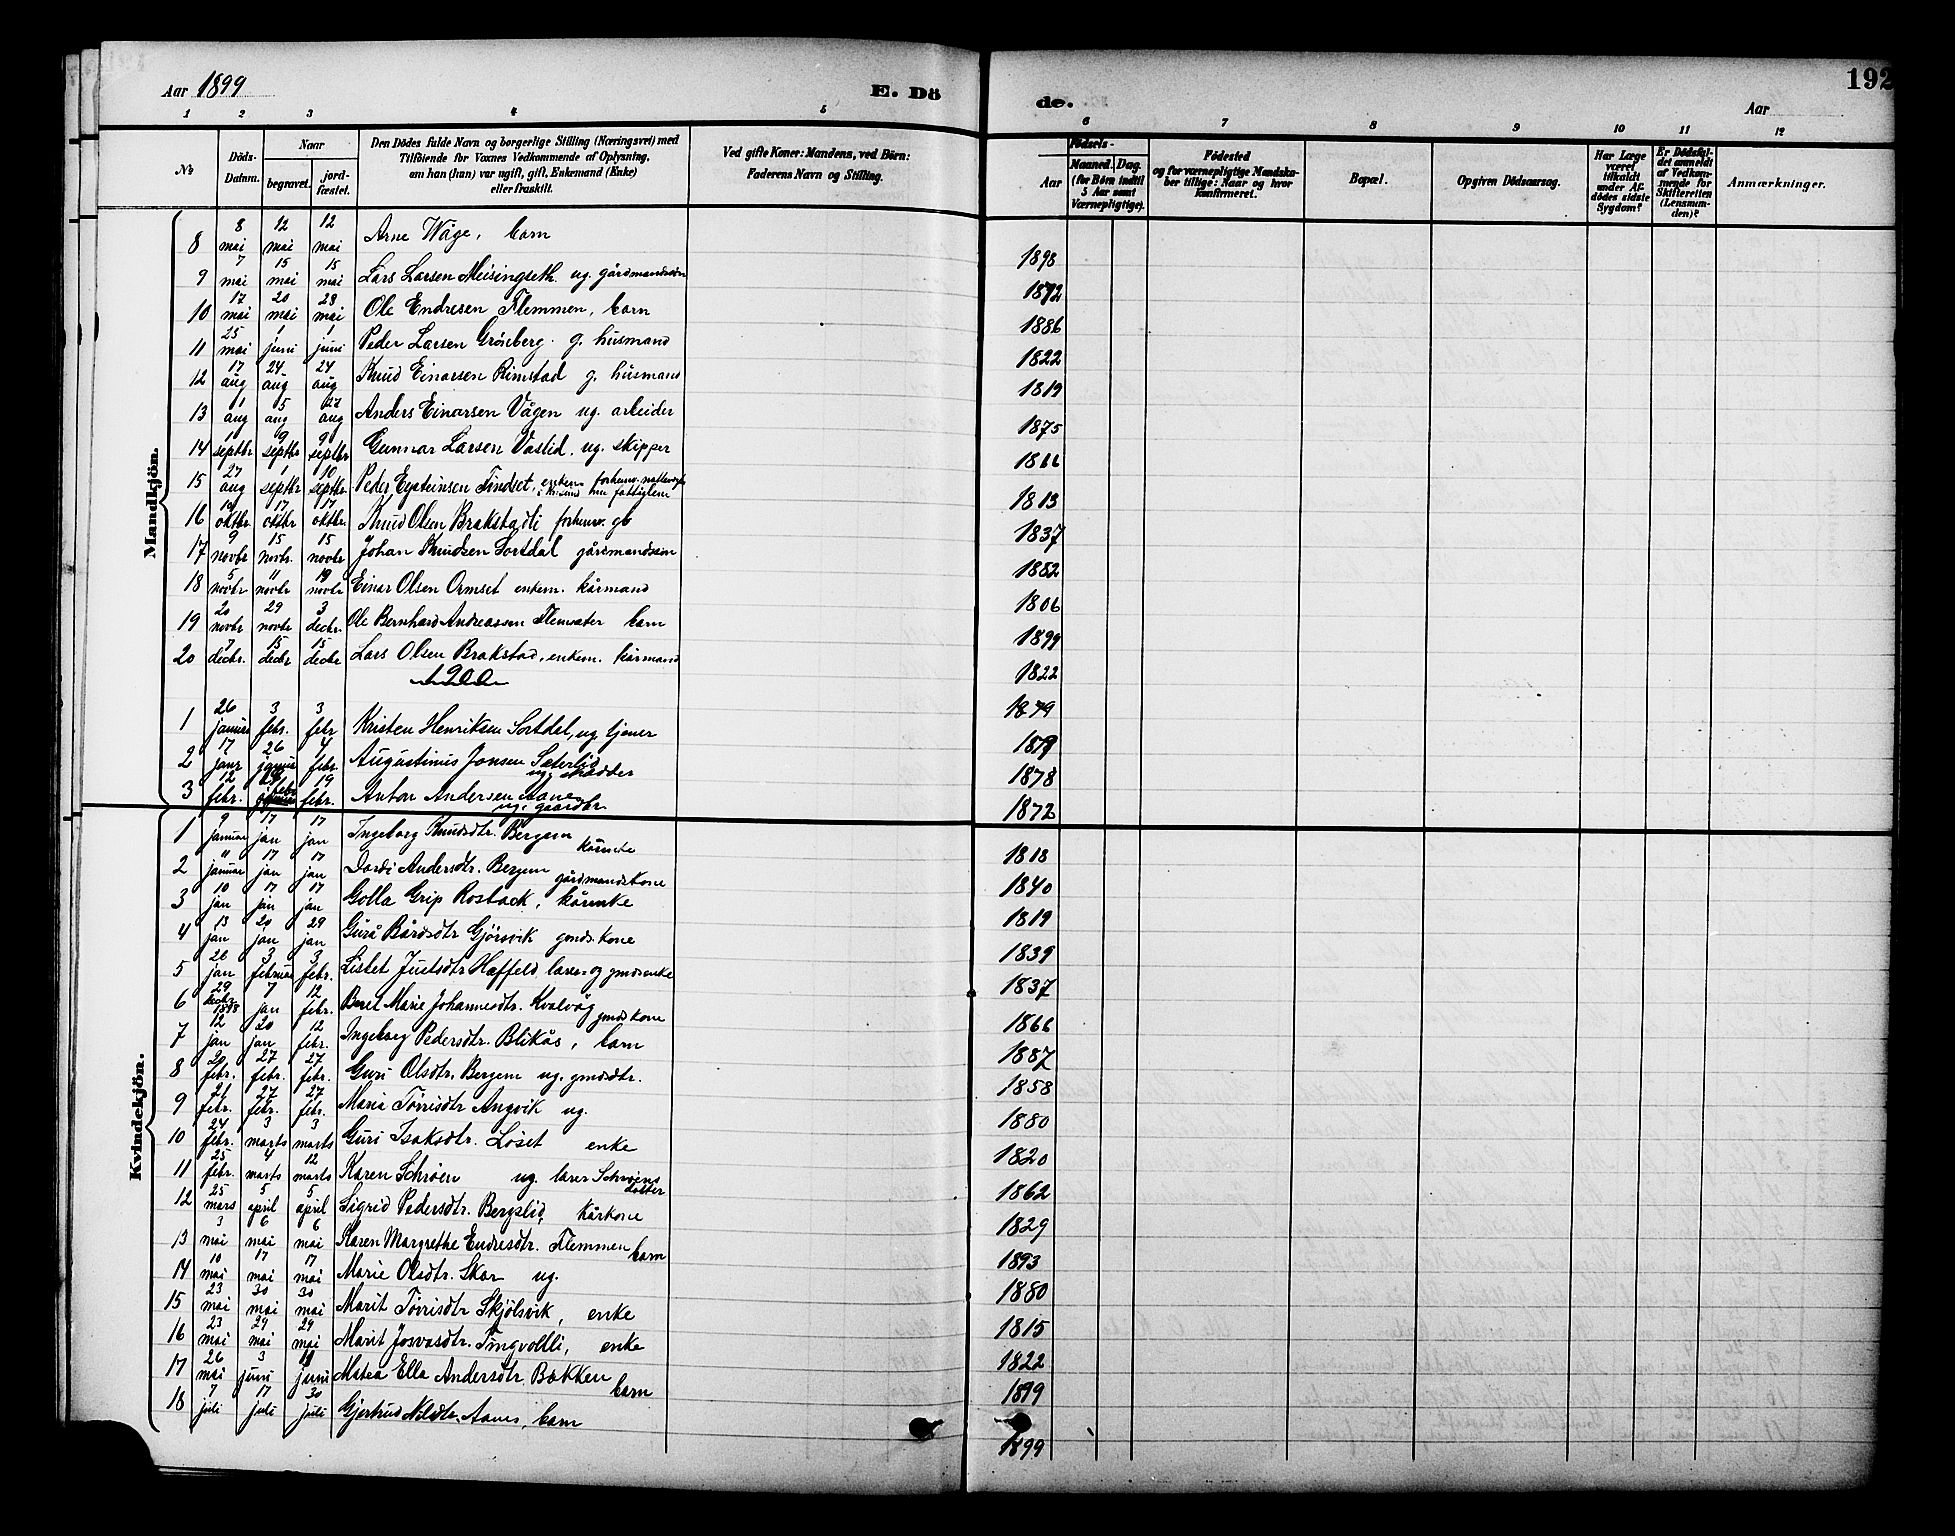 Aar 1899
E. Dö
de.
192
Aar
1 2 3 4 5 6 7 8 9 10 11 12
No
Döds-Datum.
Naar
begravet.
jord-fæstet.
Den Dödes fulde Navn og borgerlige Stilling (Næringsvei) med
Tilföiende for Voxnes Vedkommende af Oplysning,
om han (hun) var ugift, gift, Enkemand (Enke)
eller fraskilt.
Ved gifte Koner: Mandens, ved Börn:
Faderens Navn og Stilling.
Födsels-
Aar
Maaned. Dag.
(for Börn indtil
5 Aar samt
Værnepligtige).
Födested
og for værnepligtige Mandska-
ber tillige: Naar og hvor
konfirmeret.
Bopæl.
Opgiven Dödsaarsag.
Har Læge
været
tilkaldt
under Af-
dödes sidste
Sygdom?
Er Dödsfal-
det anmeldt
af Vedkom-
mende for
Skifteretten
(Lensman-
den)?
Anmærkninger.
Mandkjön.
8 8 mai 12 mai 12 mai Arne Wåge, barn 1898
9 7 mai 15 mai 15 mai Lars Larsen Meisingseth ug. gårdmandssön 1872
10 17 mai 20 mai 28 mai Ole Endresen Flemmen, barn 1886
11 25 mai 1 juni 1 juni Peder Larsen Grönberg. g. husmand 1822
12 17 aug 24 aug 24 aug Knud Einarsen Rimstad g. husmand 1819
13 1 aug 5 aug 27 aug Anders Einarsen Vågen ug. arbeider 1875
14 1 septbr 9 septbr 9 septbr Gunnar Larsen Vaslid. ug. skipper 1866
15 27 aug 1 septbr 10 septbr. Peder Eysteinsen Tindset, enkem forhenv. 1813
16 oktbr 17 oktbr 17 oktbr. Knud Olsen Brakstadli forhenv. gb 1837
17 9 novbr 15 novbr. 15 novbr Johan Knudsen Sortdal gårdmandssön 1882
18 5 novbr 11 novbr 19 novbr Einar Olsen Ormset enkem. kårmand 1806
19 20 novbr 29 novbr 3 decbr. Ole Bernhard Andreassen Flemsæter barn 1899
20 7 decbr. 15 decbr 15 decbr Lars Olsen Brakstad, enkem. kårmand 1822
1900
1 26 januar 3 febr. 3 febr Kristen Henriksen Sortdal, ug tjener 1879
2 17 janr 26 januar 4 febr. Augustinus Jonsen Sæterlid ug. skrædder 1878
3 12 febr. febr 19 febr. Anton Andersen Aanes ug. gaardbr 1872
Kvindekjön.
1 9 januar 17 jan 17 jan Ingeborg Knudsdtr. Bergem kårenke 1818
2 11 januar 17 jan 17 jan Dordi Andersdtr. Bergem gårdmandskone 1840
3 10 jan 17 jan 17 jan Golla Grip Rostock, kårenke 1819
4 13 jan 20 jan 29 jan Gurå Bårdsdtr Gjörsvik gmds. kone 1839
5 20 jan 3 februar 3 febr. Listet Justsdtr Hoffeld lærer- og gmdsenke 1837
6 29 decbr 1898 7 jan 12 febr. Beret Marie Johannesdtr. Kvalvåg gmds kone 1866
7 12 jan 20 jan 12 febr. Ingeborg Pedersdtr. Blikås, barn 1887
8 20 febr. 27 febr. 27 febr. Guri Olsdtr. Bergem ug. gmdsdtr. 1858
9 21 febr. 27 febr. 27 febr. Maria Törrisdtr Angvik ug. 1880
10 24 febr. 3 marts 3 marts Guri Isaksdtr. Löset enke 1820
11 25 febr. 4 marts 12 marts Karen Schröen ug. lærer Schröens datter 1862
12 25 mars 5 april 5 april Sigrid Pedersdtr. Bergslid, kårkone 1829
13 3 mai 6 mai 6 mai Karen Margrethe Endresdtr. Flemmen barn 1893
14 10 mai 17 mai 17 mai Marie Olsdtr. Skar ug. 1880
15 23 mai 30 mai 30 mai Marit Törrisdtr Skjölsvik, enke 1815
16 23 mai 29 mai 29 mai Marit Josvasdtr. Tingvoldli, enke 1822
17 26 mai 3 juni 11 juni Matea Ella Andersdtr Bakken barn 1899
18 7 juli 17 juli 30 juli Gjertrud Nilsdtr. Aanes, barn 1899